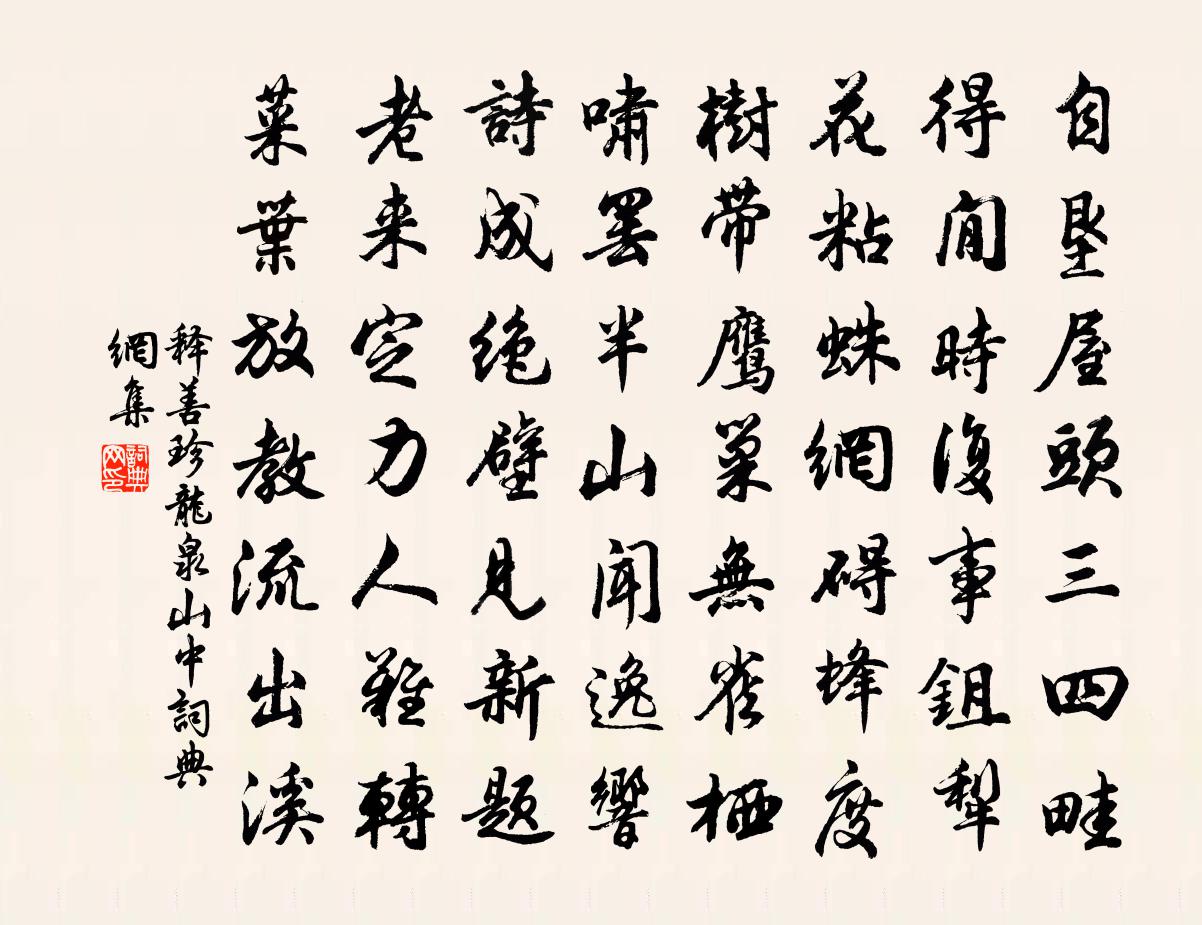 自墾屋頭三四畦
得閒時復事鉏犁
花粘蛛網碍蜂度
樹帶鷹巢無雀栖
嘯罢半山聞逸響
詩成绝壁見新题
老来定力人難轉
菜葉放教流出溪
释善珍龍泉山中詞典
網集
詞典
网印